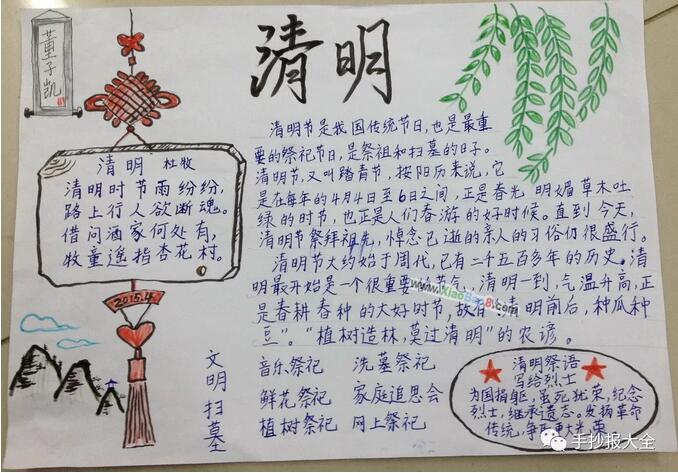 董子凯
清明
清明 杜牧
清明时节雨纷纷，
路上行人欲断魂。
借问酒家何处有，
牧童遥指杏花村。
2015.4
清明节是我国传统节日，也是最重
要的祭祀节日，是祭祖和扫墓的日子。
清明节，又叫踏青节，按阳历来说，它
是在每年的4月4日至6日之间，正是春光 明媚草木吐
绿的时节，也正是人们春游的好时候。直到今天，
清明节祭拜祖先，悼念已逝的亲人的习俗仍很盛行。
清明节大约始于周代，已有二千五百多年的历史。清
明最开始是一个很重要的节气，清明一到，气温升高，正
是春耕春种的大好时节，故有“清明前后，种瓜种
豆”。“植树造林，莫过清明”的农谚。
文明扫墓
音乐祭祀 洗墓祭祀
鲜花祭祀 家庭追思会
植树祭祀 网上祭祀
清明祭语
写给烈士
为国捐躯，虽死犹荣，纪念
烈士，继承遗志。发扬革命
传统，争取更大光荣
手抄报大全